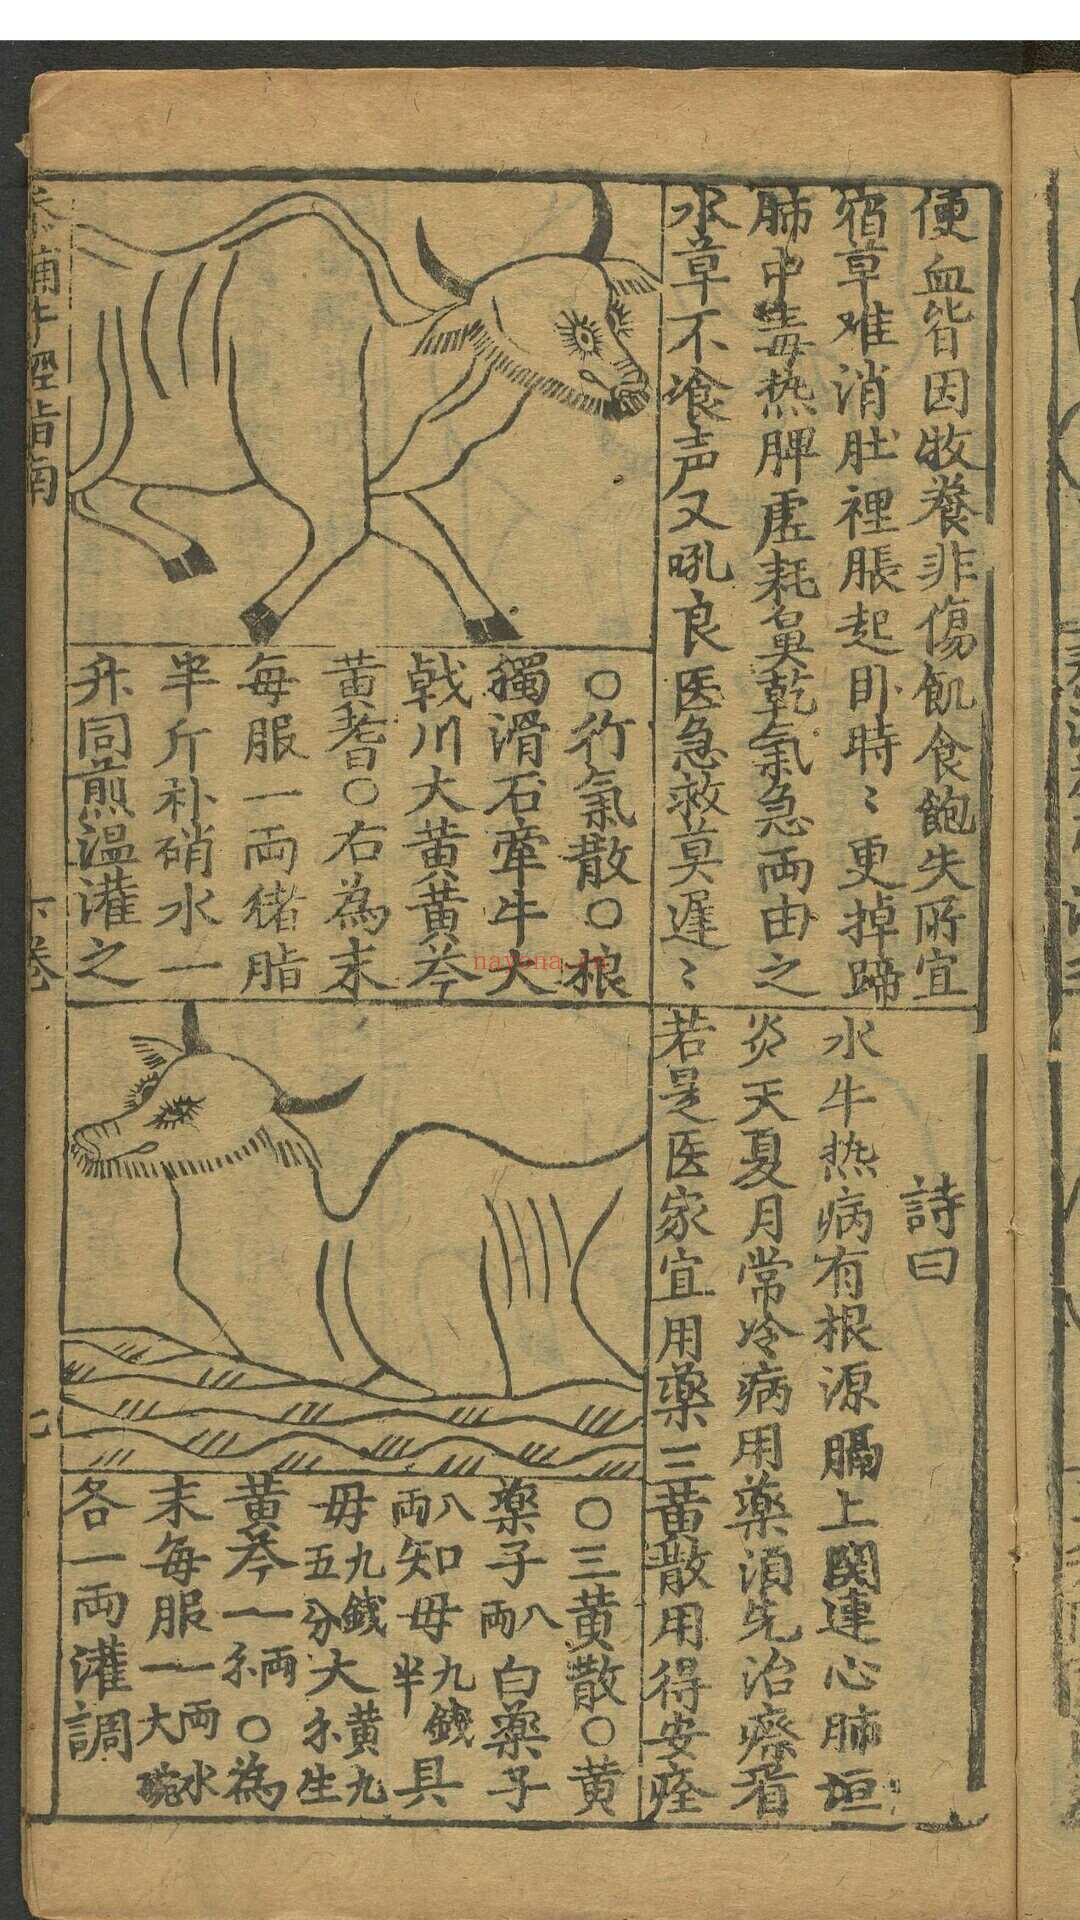 便血皆因牧養非傷飢食飽失所宜
宿草难消肚裡脹起卧時〻更掉蹄
肺中毒热脾虚耗鼻乾氣急両由之
水草不飡声又吼良医急救莫遲〻
○行氣散○榔
獨滑石牽牛大
戟川大黄黄芩
黄耆○右為末
每服一両猪脂
半斤朴硝水一
升同煎温灌之
詩曰
水牛热病有根源膈上関連心肺垣
炎天夏月常冷病用藥須先治療看
若是医家宜用藥三黄散用得安痊
○三黄散○黄
藥子八両白藥子
八両知母九錢半具
母九錢五分大黄九尒生
黄芩一両尒○為
末每服一両水一大碗
各一両灌調
補牛經指南
下卷
七
nayona.cn